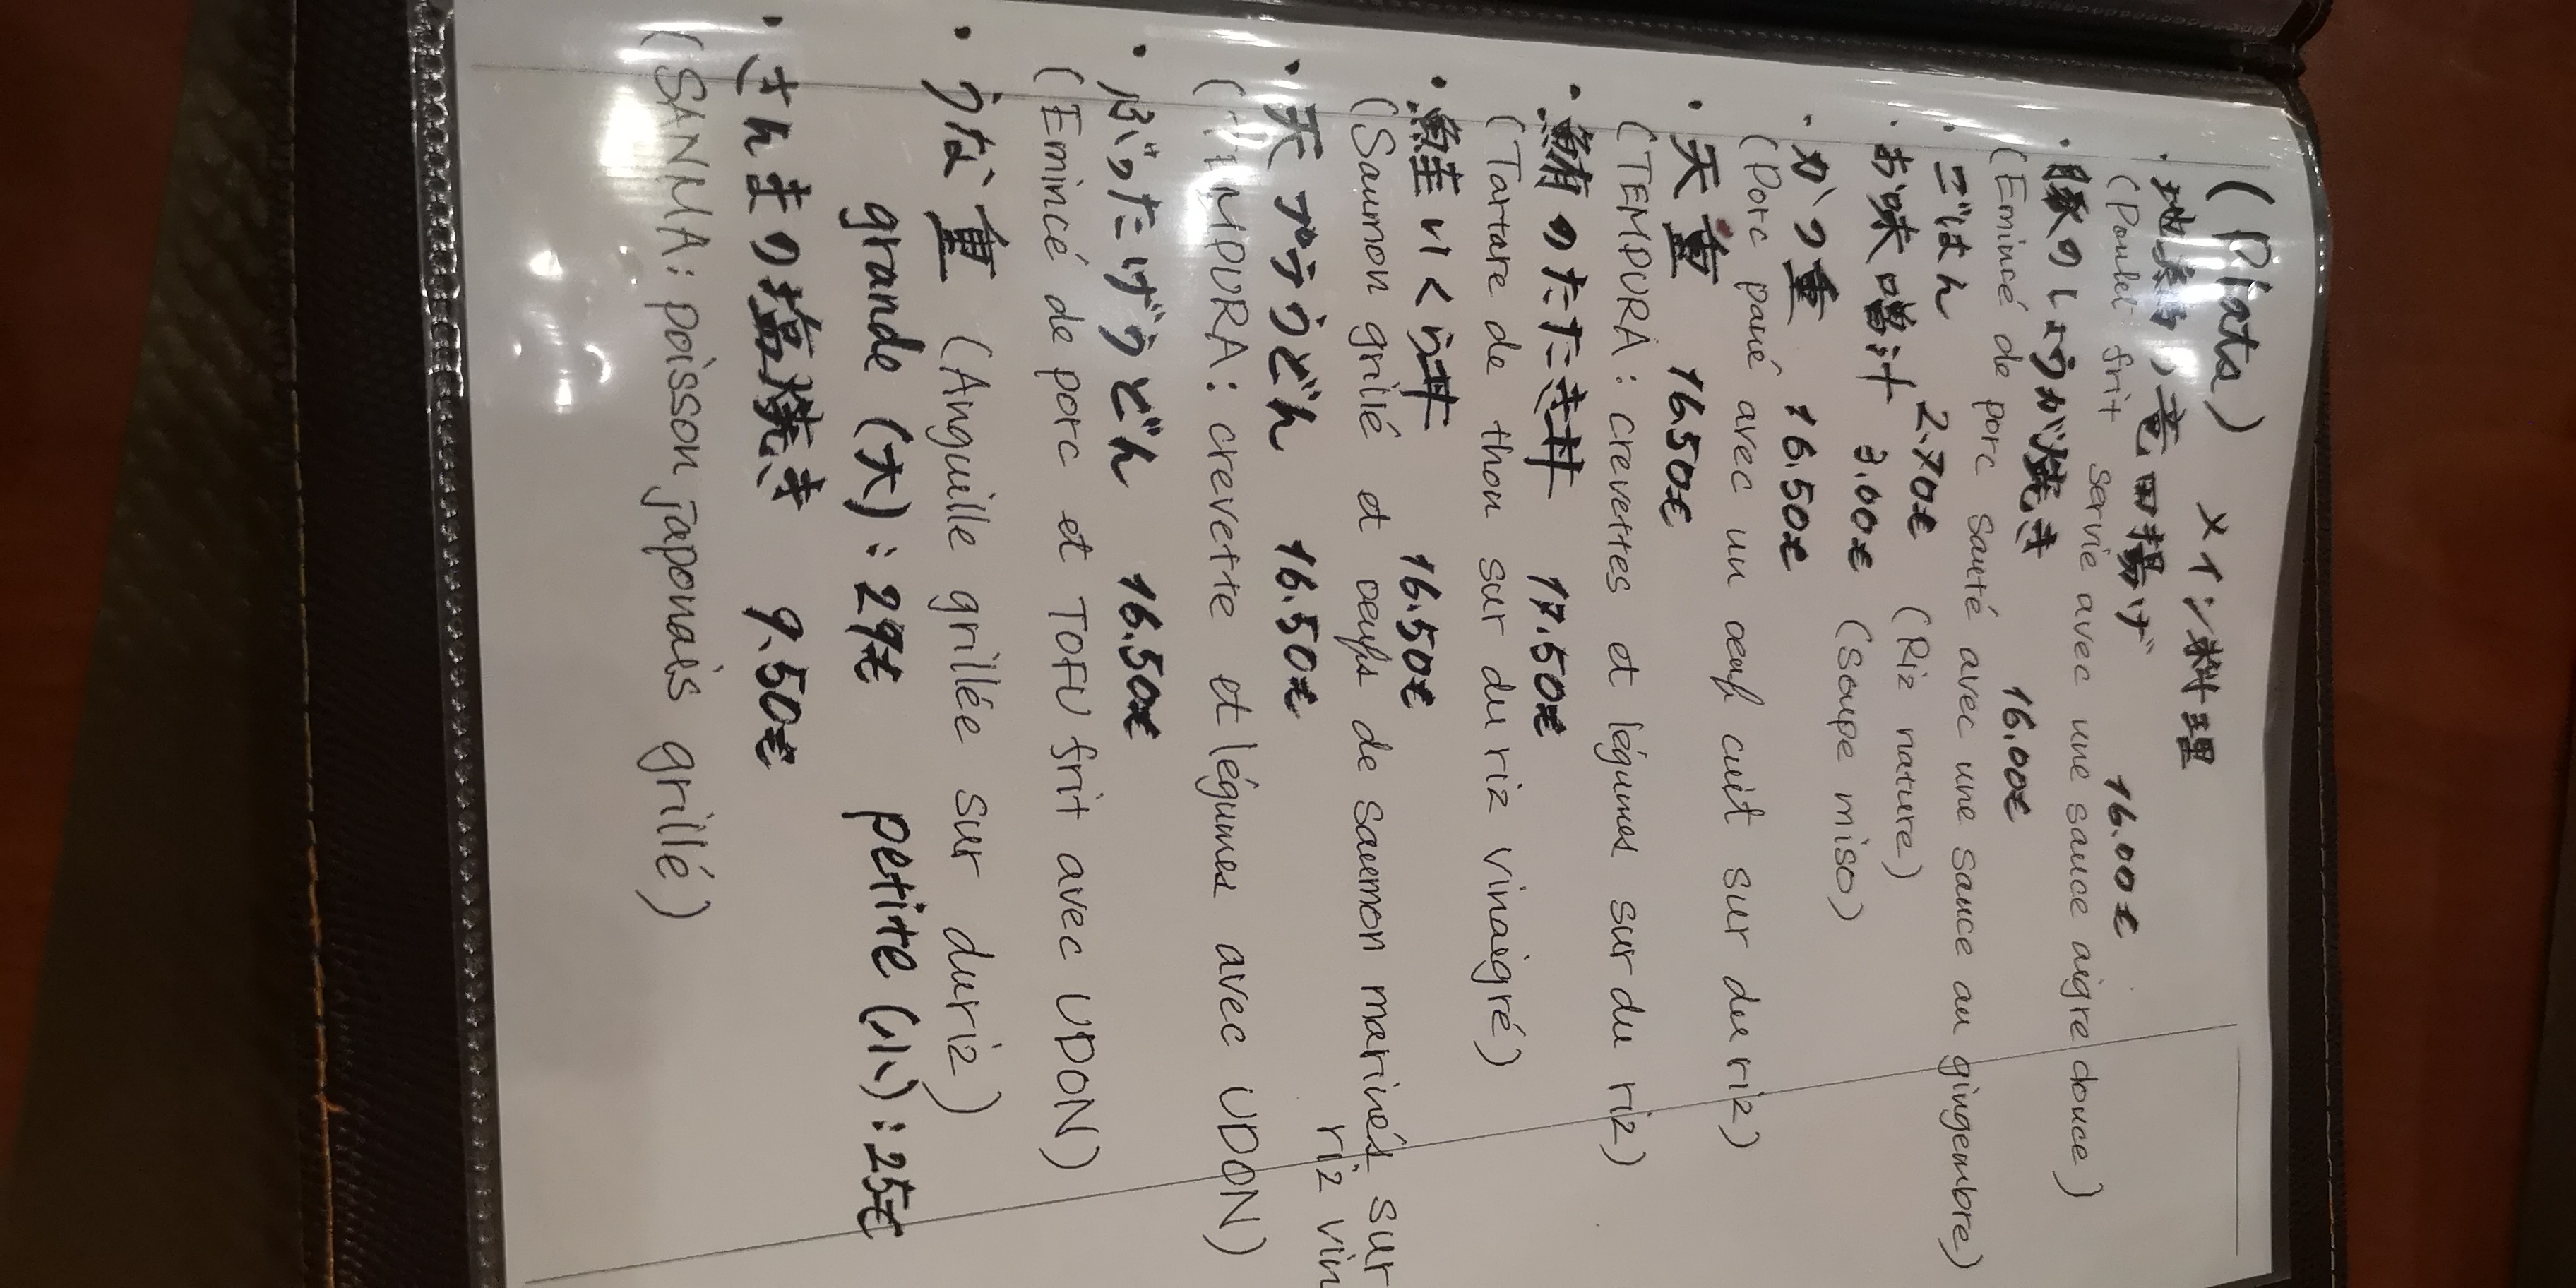 (Plats) メイン料理
・地鶏の竜田揚げ 16.00€
(Poulet frit servie avec une sauce aigre douce)
・豚のしょうが焼き 16.00€
(Emincé de porc sauté avec une sauce au gingembre)
・ごはん 2.70€ (Riz nature)
・お味噌汁 3.00€ (Soupe miso)
・かつ重 16.50€
(Porc pané avec un œuf cuit sur du riz)
・天重 16.50€
(TEMPURA: crevettes et légumes sur du riz)
・鮪のたたき丼 17.50€
(Tartare de thon sur du riz vinaigré)
・鮭いくら丼 16.50€
(Saumon grillé et œufs de saumon marinés sur
riz vin
・天プラうどん 16.50€
(TEMPURA: crevette et légumes avec UDON)
・ぶったげうどん 16.50€
(Emincé de porc et TOFU frit avec UDON)
・うな重 (Anguille grillée sur du riz)
grande (大): 29€ petite (小): 25€
・さんまの塩焼き 9.50€
(SANMA: poisson japonais grillé)